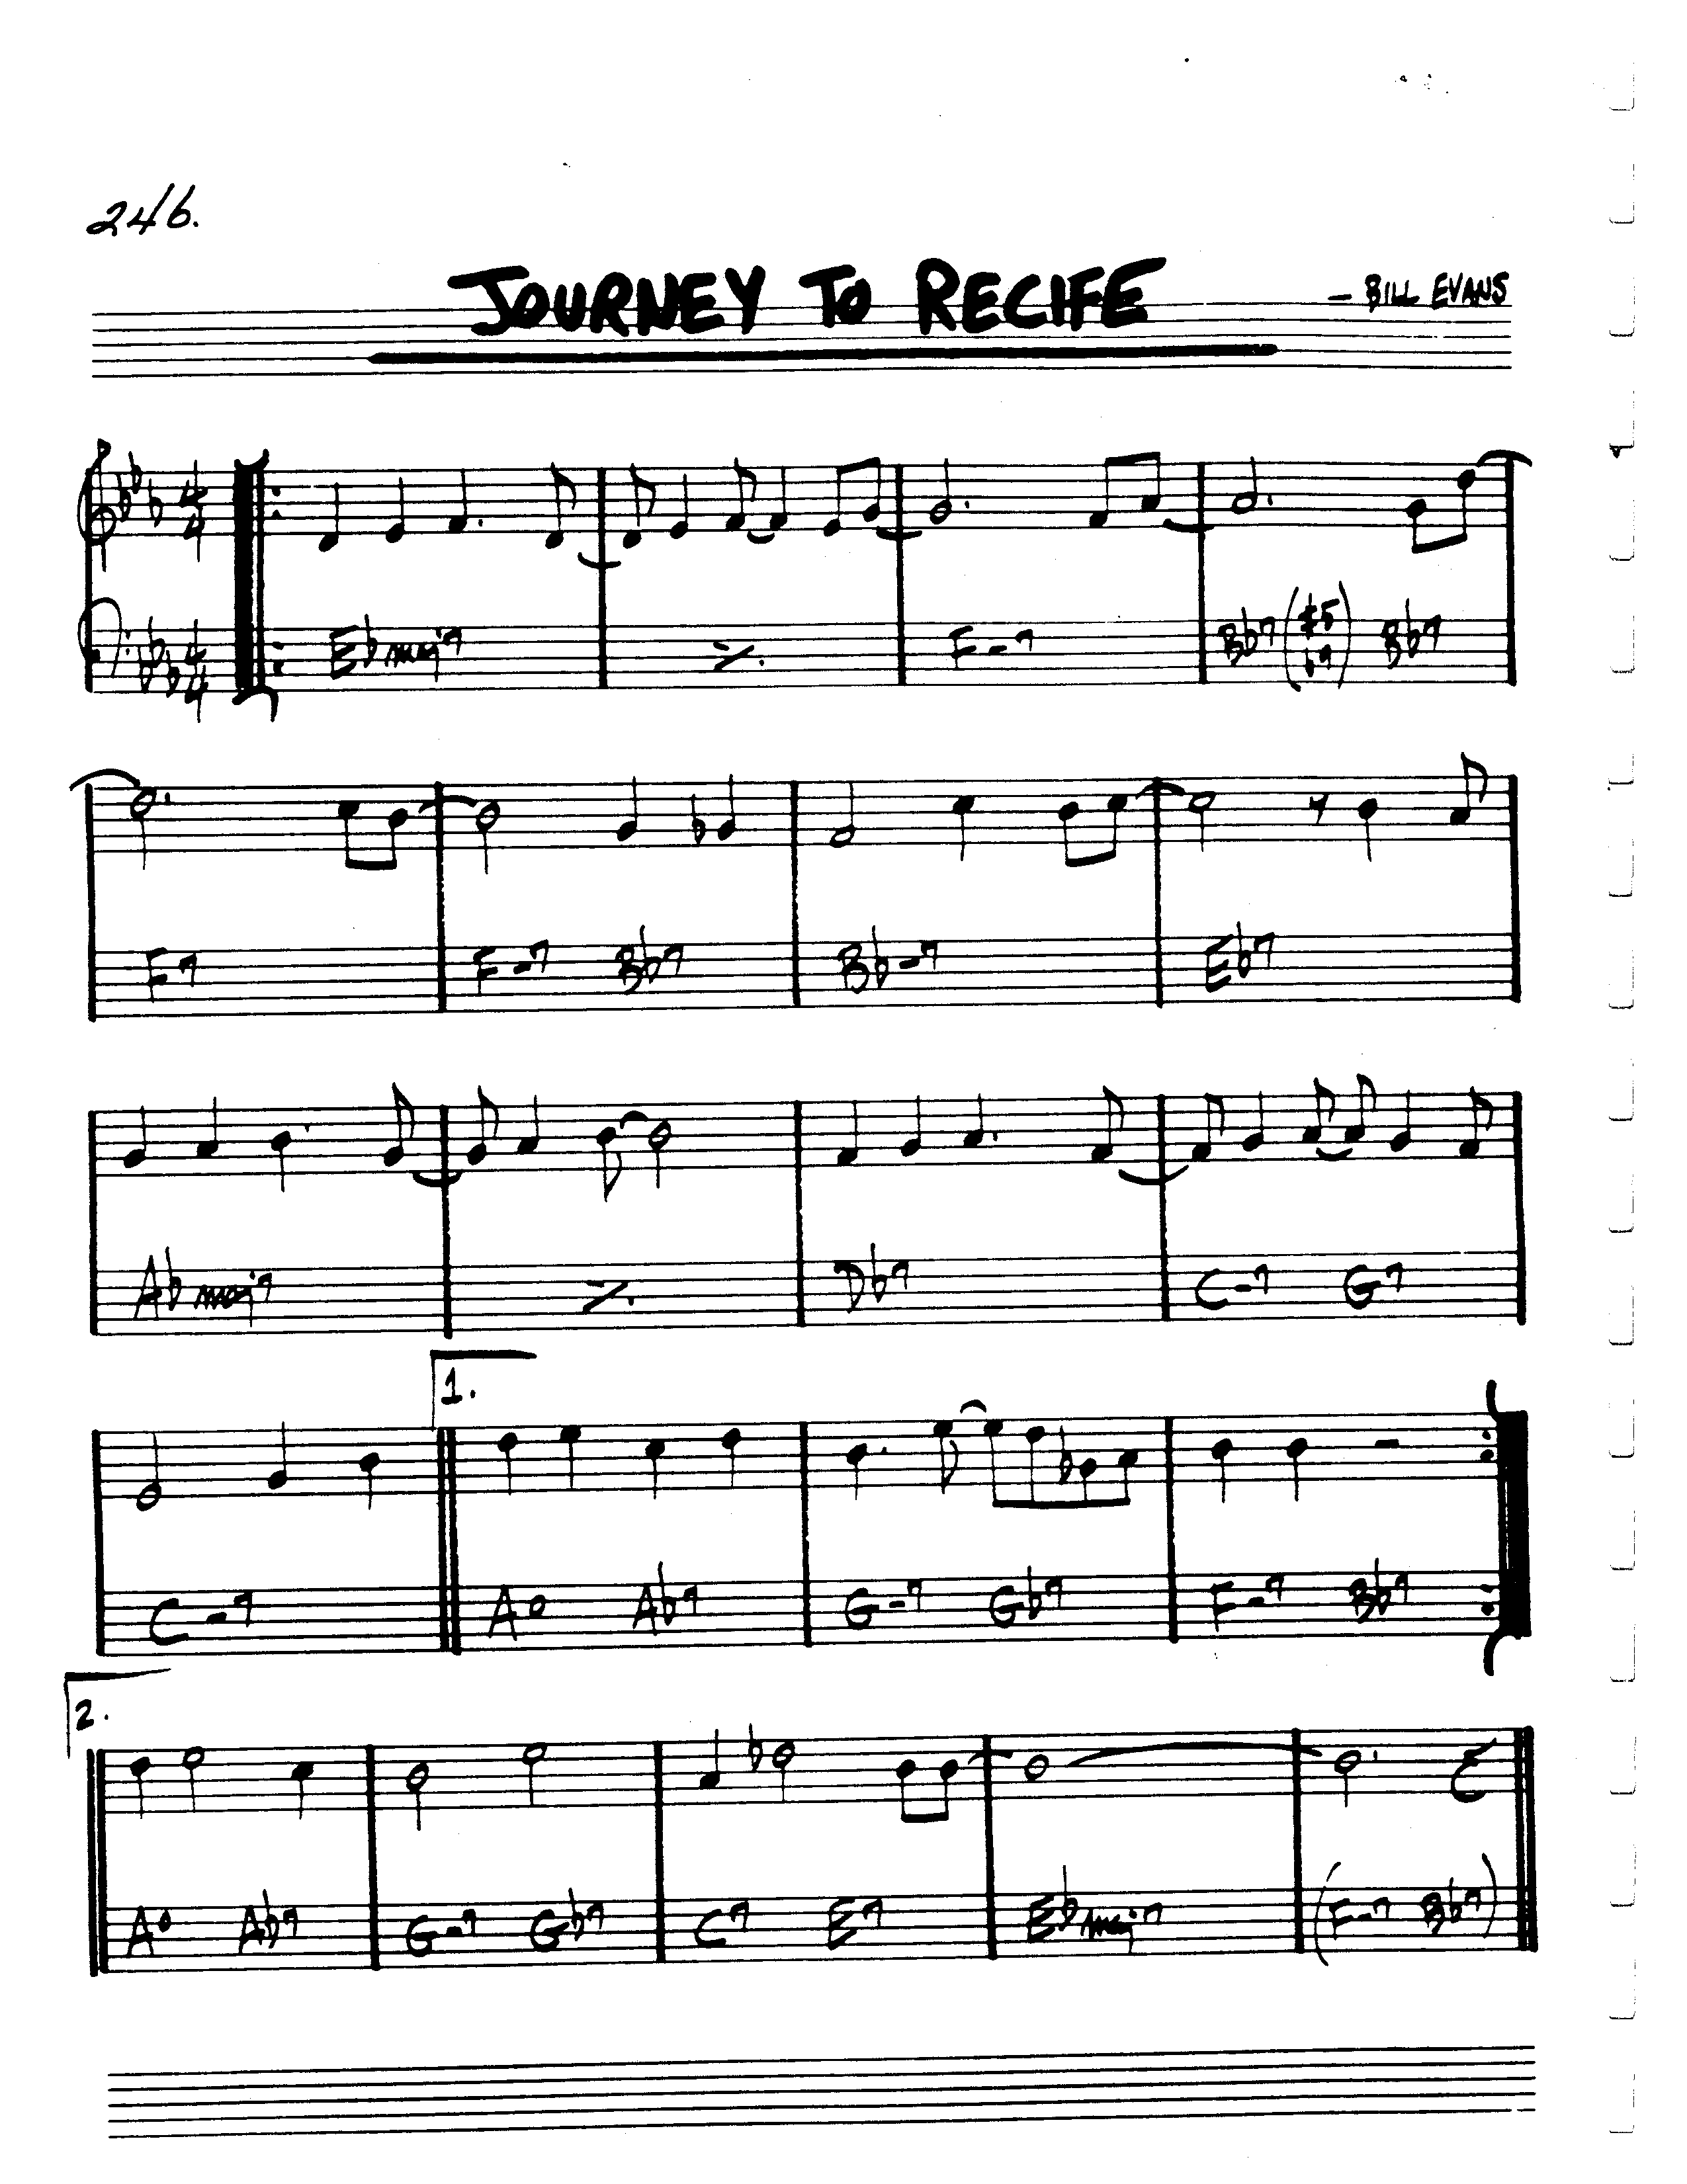 246.
JOURNEY TO RECIFE
– BILL EVANS
4 4
4 4
E♭maj7 ٪ F-7 B♭7(♯5 ♭9) B♭7
F7 F-7 B♭7 B♭-7 E♭7
A♭maj7 ٪ D♭7 C-7 G7
1.
C-7 A° A♭7 G-7 G♭7 F-7 B♭7
2.
A° A♭7 G-7 G♭7 C7 E7 E♭maj7 (F-7 B♭7)